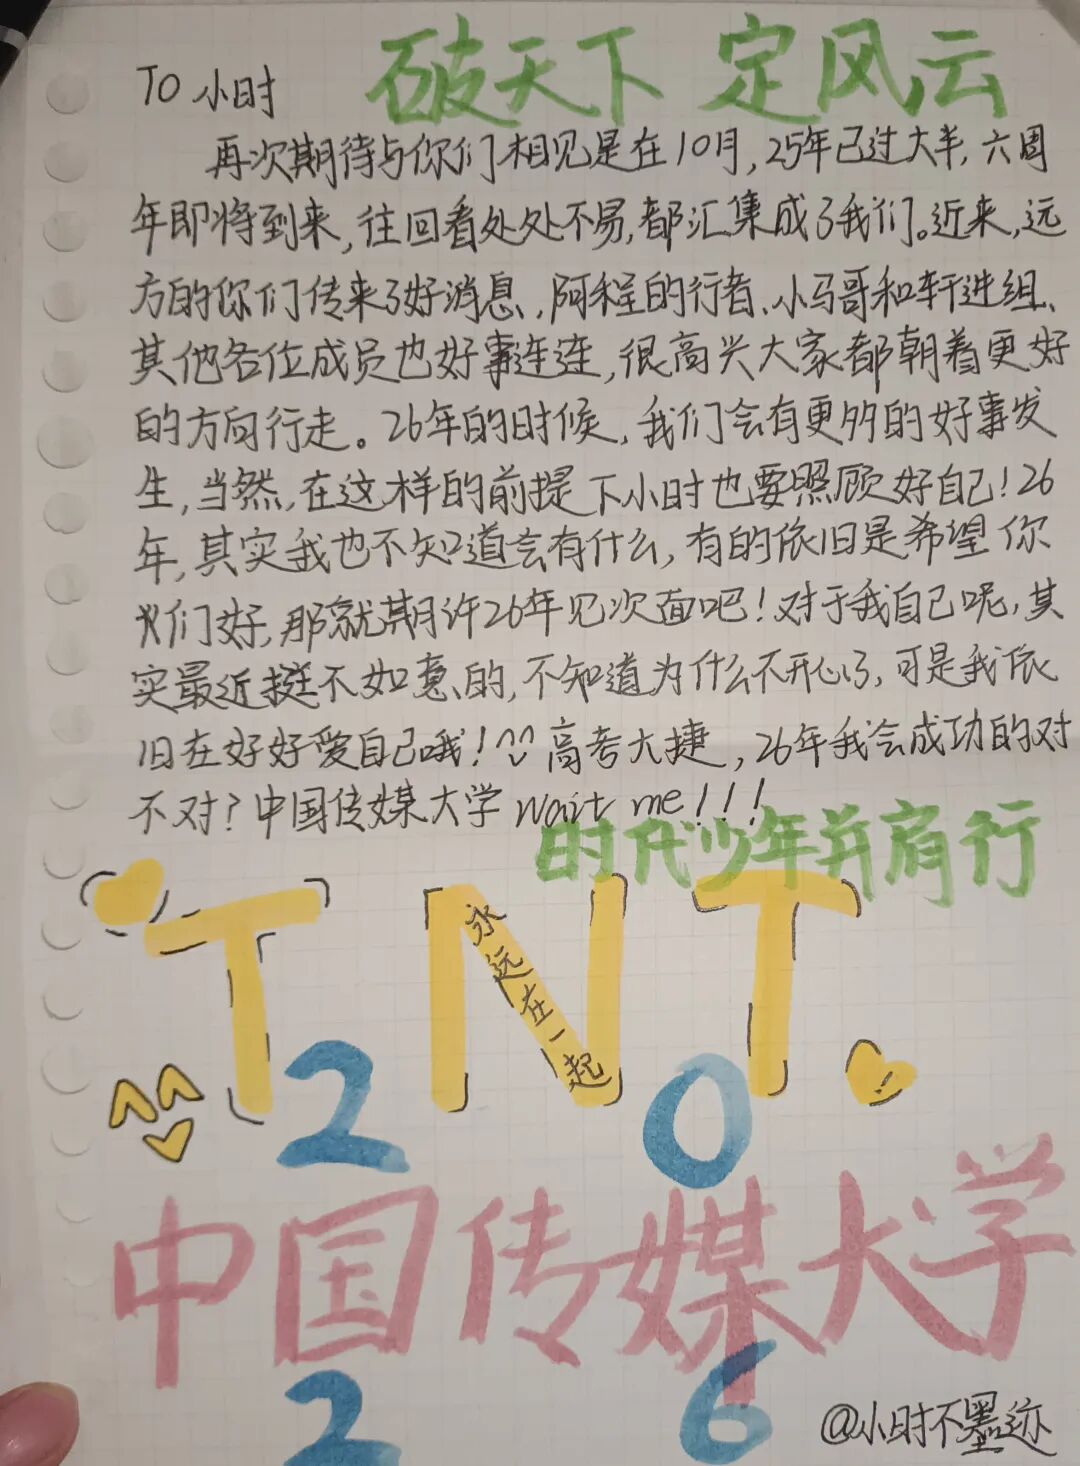 破天下 定风云
TO 小时
再次期待与你们相见是在10月,25年已过大半,六周
年即将到来,往回看处处不易,都汇集成了我们。近来,远
方的你们传来了好消息,阿程的行者、小马哥和轩进组、
其他各位成员也好事连连,很高兴大家都朝着更好
的方向行走。26年的时候,我们会有更多的好事发
生,当然,在这样的前提下小时也要照顾好自己!26
年,其实我也不知道会有什么,有的依旧是希望你
们好,那就期许26年见次面吧!对于我自己呢,其
实最近挺不如意的,不知道为什么不开心了,可是我依
旧在好好爱自己哦!^^高考大捷,26年我会成功的对
不对?中国传媒大学 wait me!!!
时代少年并肩行
TNT.
永远在一起
20
中国传媒大学
26
@小时不墨迹